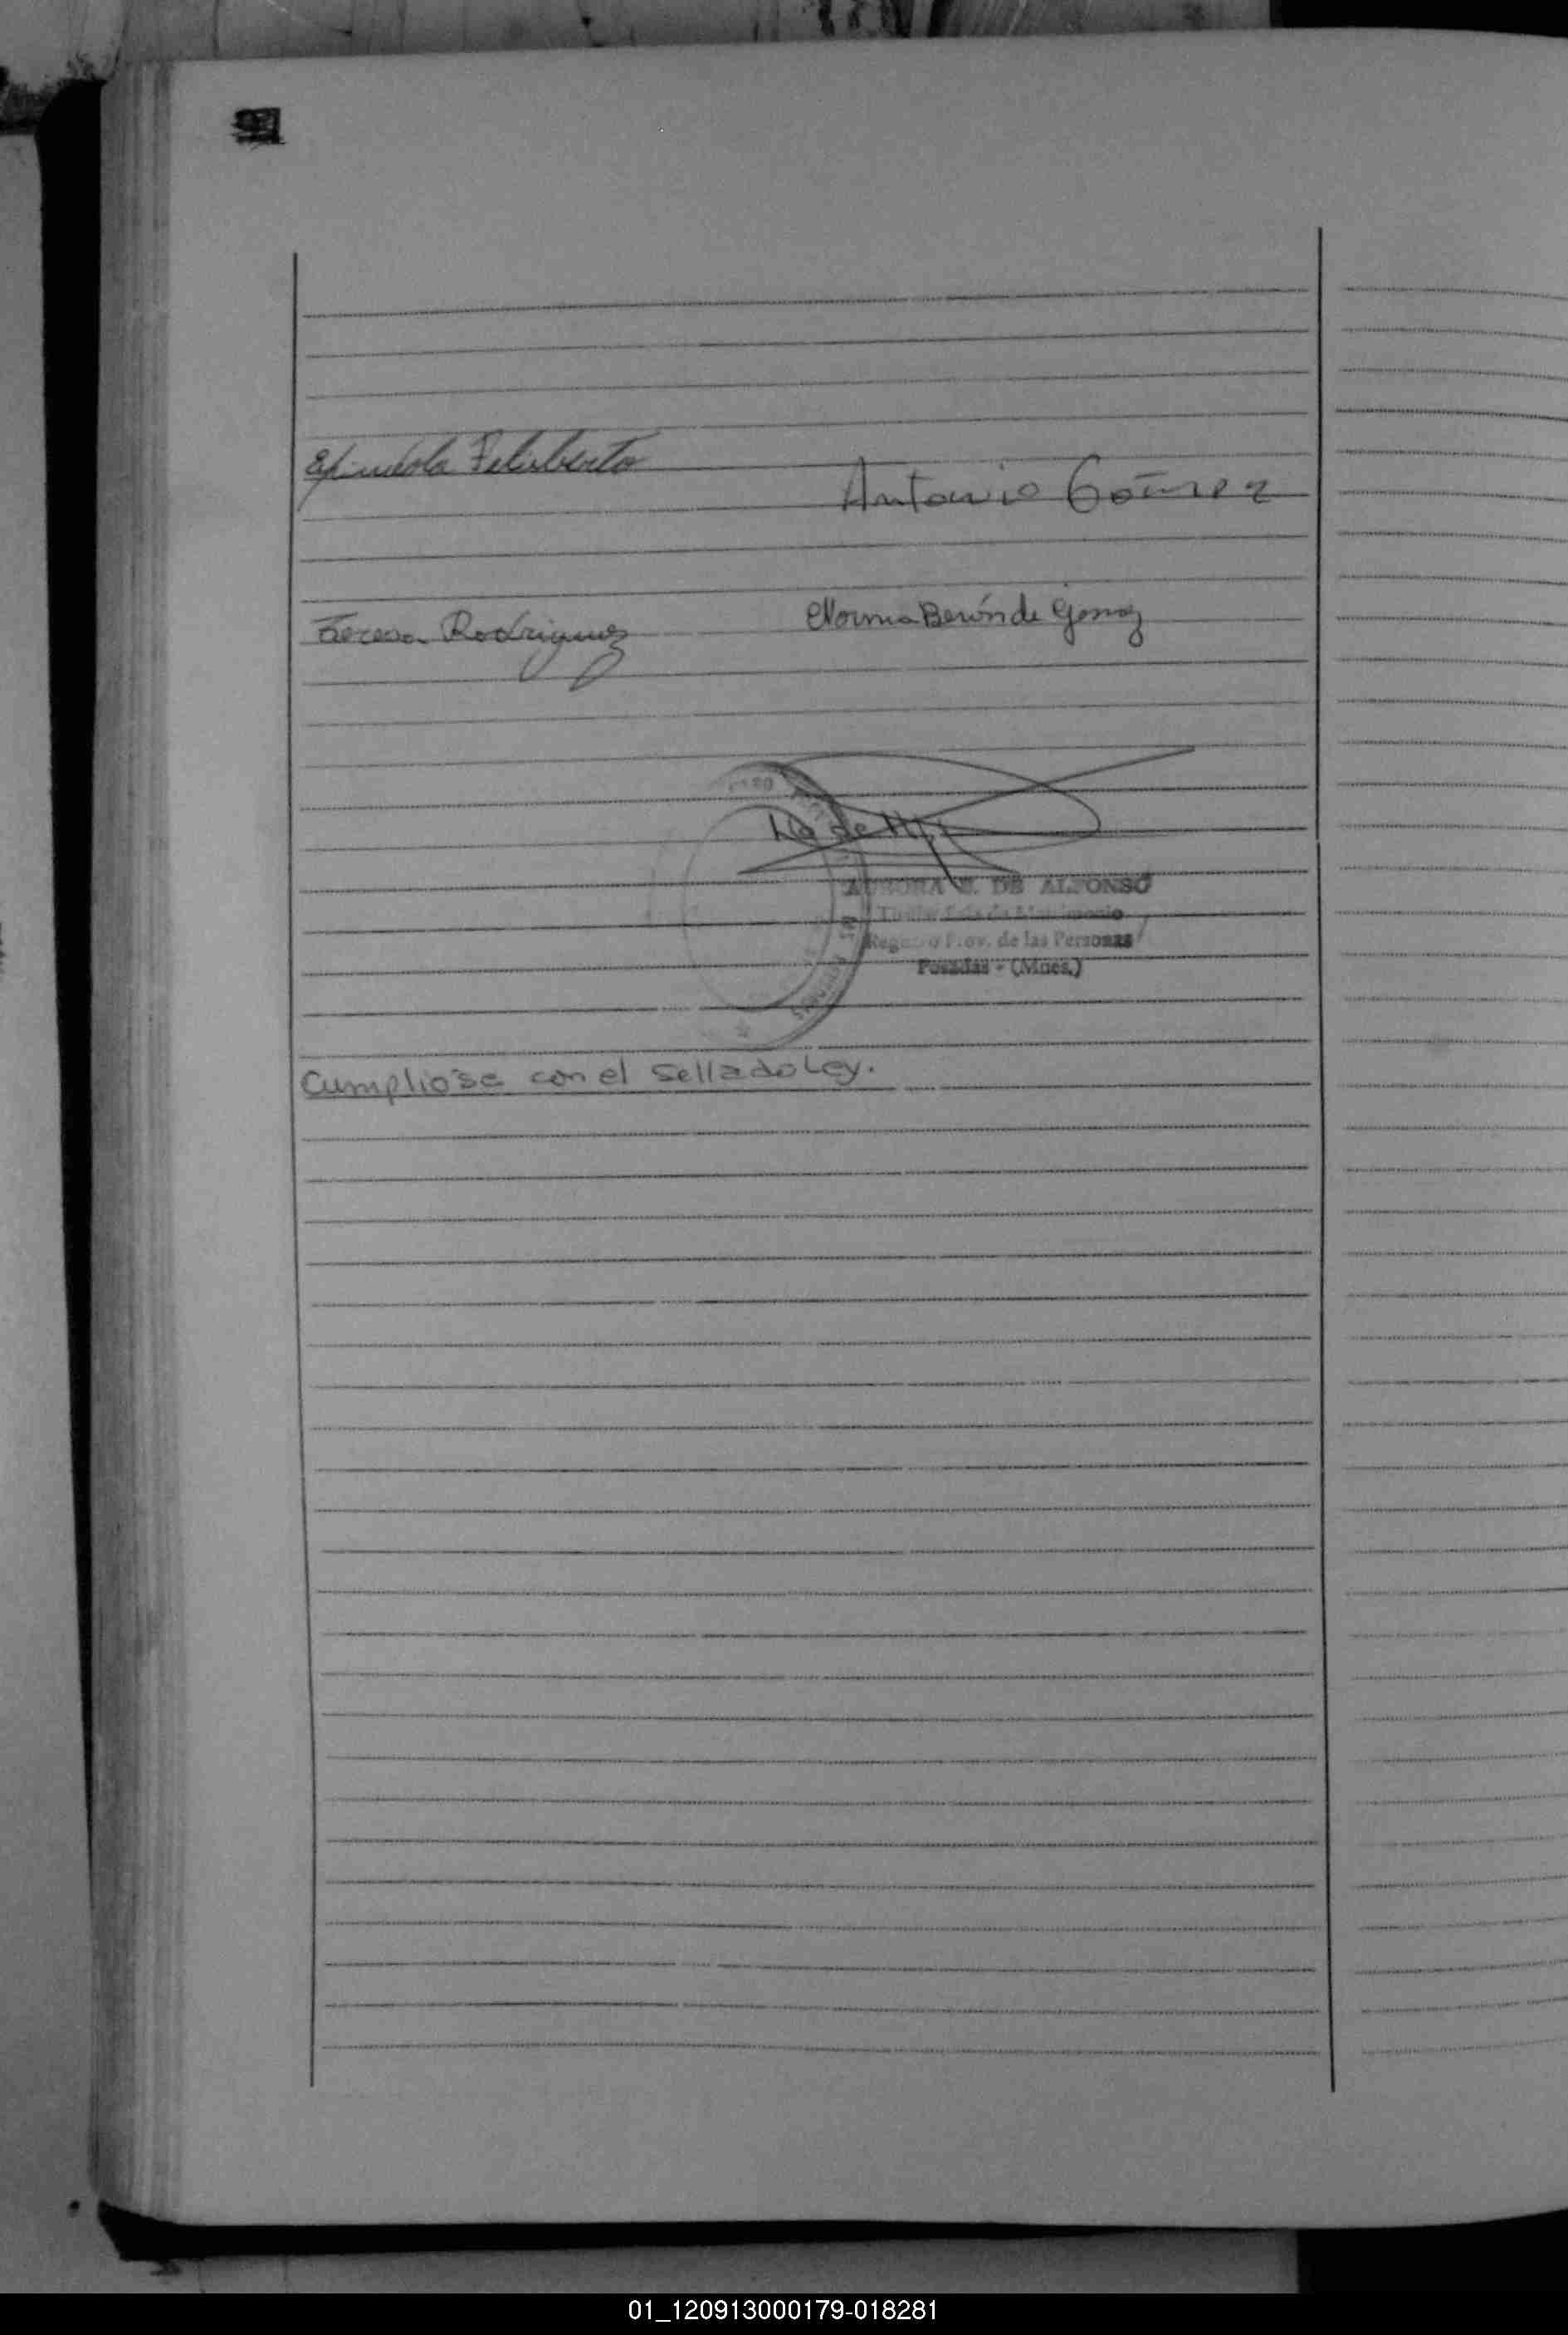 Espindola Feliberto
Antonio Gómez
Teresa Rodriguez
Norma Berón de Gomez
AURORA DE ALFONSO
Registro Prov. de las Personas
Posadas - (Mnes.)
Cumplióse con el Sellado Ley.
01_120913000179-018281